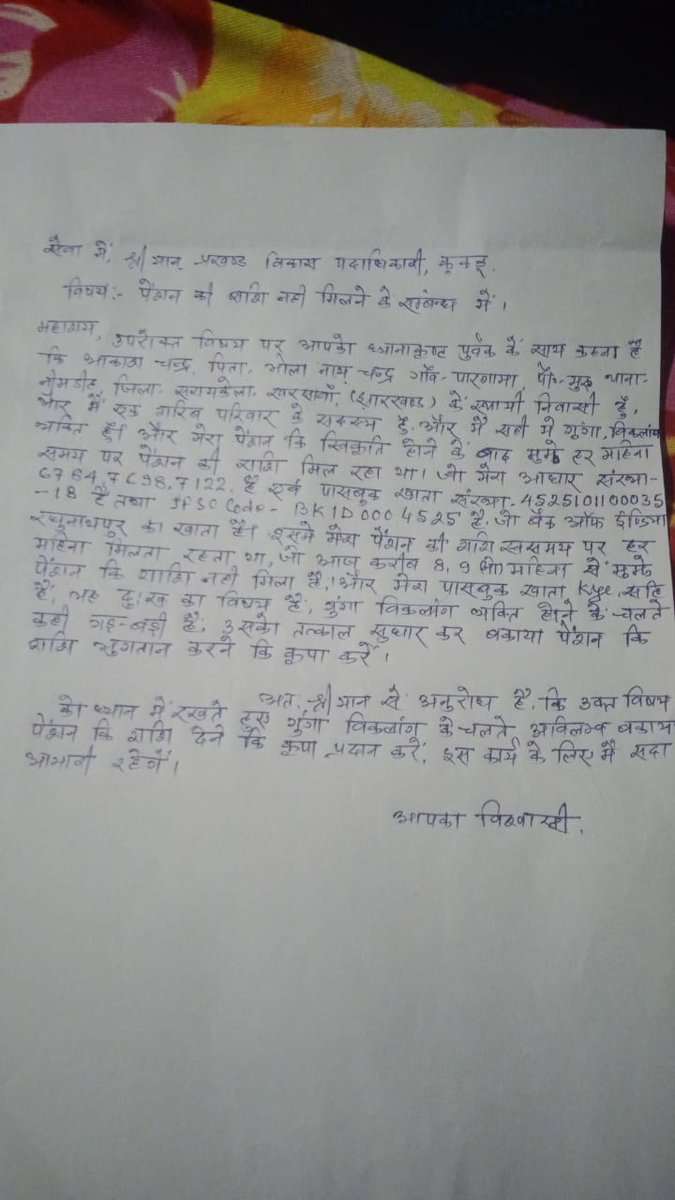 सेवा में, श्रीमान् प्रखण्ड विकास पदाधिकारी, कुकड़ू.
विषय:- पेंशन की राशि नहीं मिलने के सम्बन्ध में।
महाशय, उपरोक्त विषय पर आपको ध्यानाकृष्ट पुर्वक के साथ कहना है
कि आकाश चन्द्र, पिता- भोला नाथ चन्द्र गाँव- पारगामा, पो॰- थाना-
नीमडीह, जिला- सरायकेला- खरसावाँ, (झारखण्ड) के स्थायी निवासी हूँ,
और मैं एक गरिब परिवार के सदस्य हूँ, और मैं सही में गूंगा, विकलांग
व्यक्ति हूँ। और मेरा पेंशन कि स्विकृति होने के बाद मुझे हर महिना
समय पर पेंशन की राशि मिल रहा था। जो मेरा आधार संख्या-
6784,7698,7122, है एवं पासबुक खाता संख्या- 4525101100035
-18 है तथा IFSC Code- BKID0004525 है, जो बैंक ऑफ इण्डिया
रघुनाथपुर का खाता है। इसमे मेरा पेंशन की राशि स्वसमय पर हर
महिना मिलता रहता था, जो आज करीब 8, 9 महिना से मुझे
पेंशन कि राशि नहीं मिला है। और मेरा पासबुक खाता Kyc सहि
है, यह दुःख का विषय है, गुंगा विकलांग व्यक्ति होने के चलते
कही गड़-बड़ी है, उसको तत्काल सुधार कर बकाया पेंशन कि
राशि भुगतान करने कि कृपा करें।
अतः श्रीमान से अनुरोध है, कि उक्त विषय
को ध्यान में रखते हुए गुंगा विकलांग के चलते अविलम्ब बकाया
पेंशन कि राशि देने कि कृपा प्रदान करें, इस कार्य के लिए मैं सदा
आभारी रहेगें।
आपका विश्वासी,